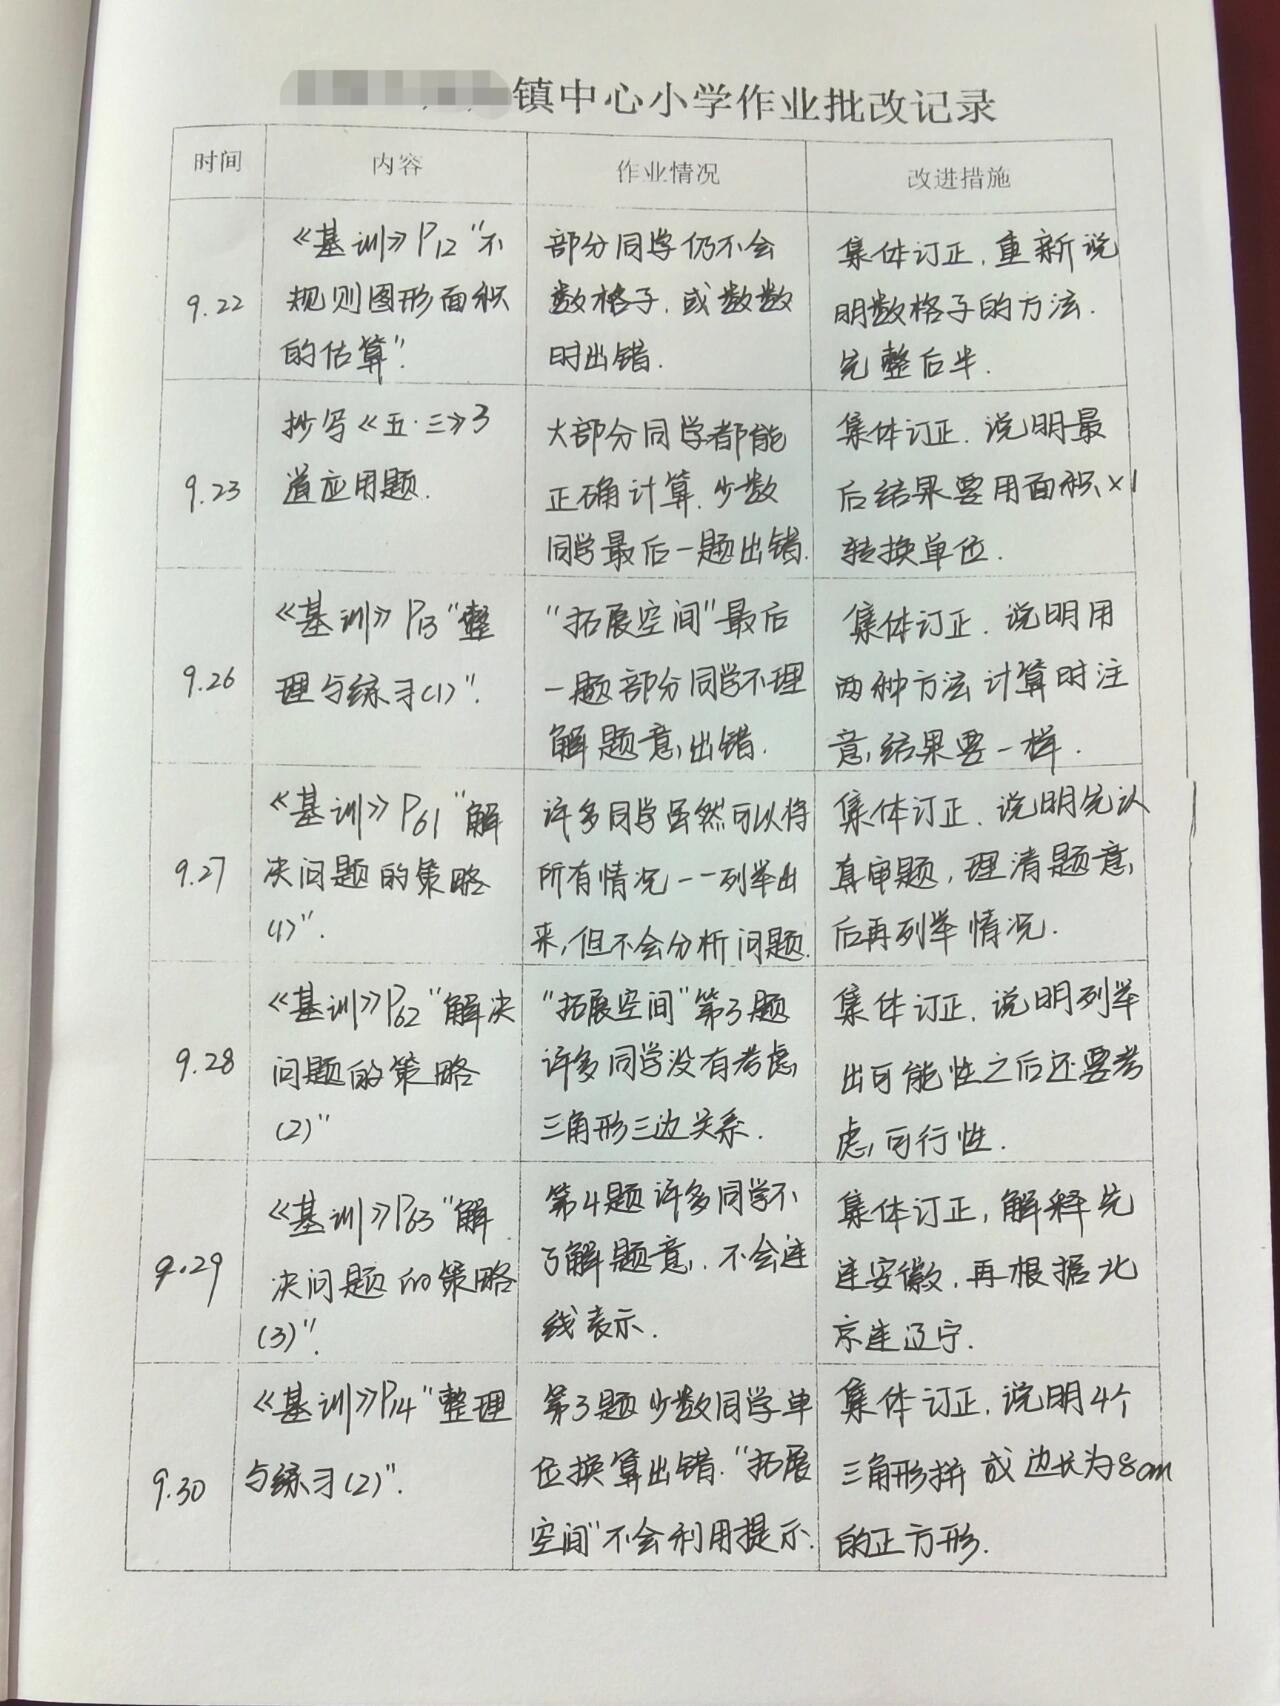 镇中心小学作业批改记录
时间 内容 作业情况 改进措施
9.22
《基训》P12“不
规则图形面积
的估算”.
部分同学仍不会
数格子.或数数
时出错.
集体订正.重新说
明数格子的方法.
先整后半.
9.23
抄写《五·三》3
道应用题.
大部分同学都能
正确计算.少数
同学最后一题出错.
集体订正.说明最
后结果要用面积×1
转换单位.
9.26
《基训》P13“整
理与练习(1)”.
“拓展空间”最后
一题部分同学不理
解题意,出错.
集体订正.说明用
两种方法计算时注
意,结果要一样.
9.27
《基训》P61“解
决问题的策略
(1)”.
许多同学虽然可以将
所有情况一一列举出
来,但不会分析问题.
集体订正.说明先认
真审题,理清题意,
后再列举情况.
9.28
《基训》P62“解决
问题的策略
(2)”
“拓展空间”第3题
许多同学没有考虑
三角形三边关系.
集体订正.说明列举
出可能性之后还要考
虑可行性.
9.29
《基训》P63“解
决问题的策略
(3)”.
第4题许多同学不
了解题意.不会连
线表示.
集体订正,解释先
连安徽,再根据北
京连辽宁.
9.30
《基训》P14“整理
与练习(2)”.
第3题少数同学单
位换算出错.“拓展
空间”不会利用提示.
集体订正.说明4个
三角形拼成边长为8cm
的正方形.